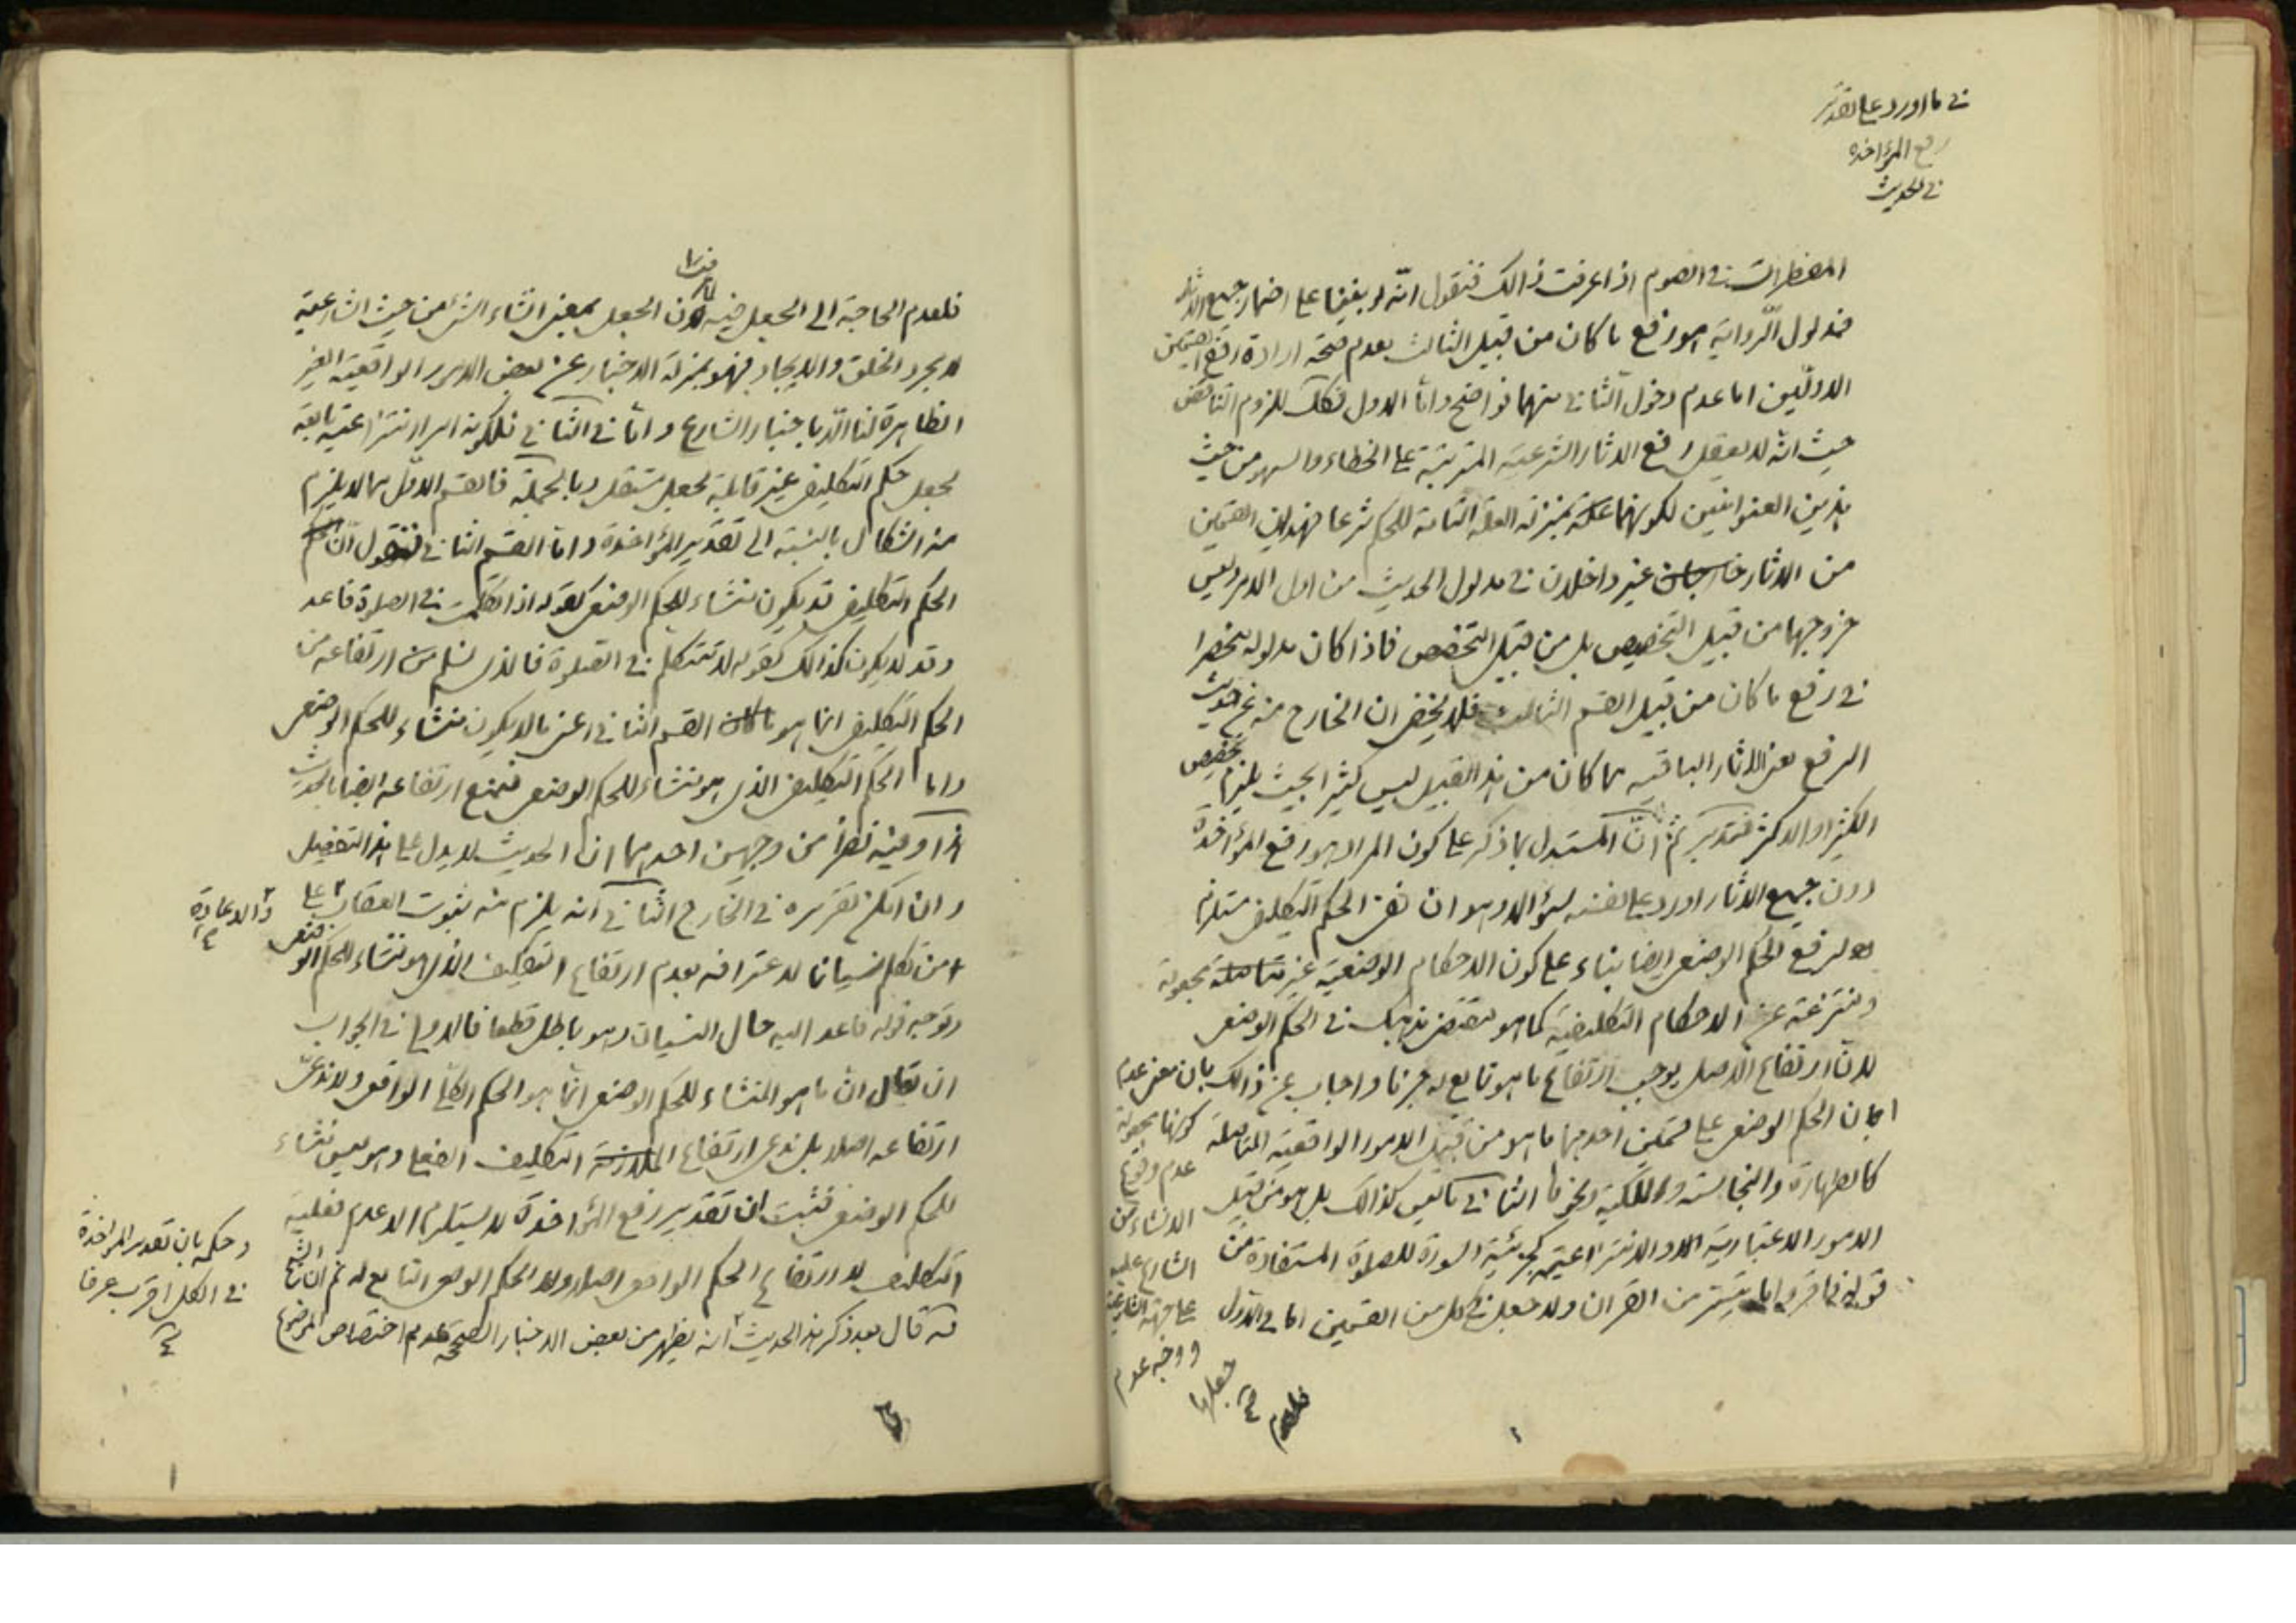 في ما اورد على تقدير
رفع المؤاخذة
في الحديث
المفطرات في الصوم اذا عرفت ذالك فنقول انّه لو بنينا على اضمار جميع الاثار
فمدلول الرّواية هو رفع ما كان من قبيل الثالث بعدم صحّة ارادة رفع القسمين
الاوليّن اما عدم دخول الثاني منهما فواضح وامّا الاول فكك للزوم التناقض
حيث انّه لا يعقل رفع الاثار الشرعيّة المترتبة على الخطاء والسهو من حيث
هذين العنوانين لكونهما بمنزلة العلة التامة للحكم شرعا فهذان القسمين
من الاثار خارجان غير داخلان في مدلول الحديث من اول الامر وليس
خروجهما من قبيل التخصيص بل من قبيل التخصص فاذا كان مدلوله منحصرا
في رفع ما كان من قبيل القسم الثالث فلا يخفى ان الخارج منه عن حديث
الرفع يعني الاثار الباقيه مما كان من هذا القبيل ليس كثيرا بحيث يلزم تخصيص
الكثير او الاكثر فتدبر ثم انّ المستدل بما ذكر على كون المراد هو رفع المؤاخذة
دون جميع الاثار اورد على نفسه سؤالا وهو ان نفي الحكم التكليفي مستلزم
لرفع الحكم الوضعي ايضا بناء على كون الاحكام الوضعيّة غير متاصلة مجعولة
ومنتزعة عن الاحكام التكليفيّة كما هو مقتضى مذهبك في الحكم الوضعي
لانّ ارتفاع الاصل يوجب ارتفاع ما هو تابع له جزما واجاب عن ذالك بان معنى عدم
كونها مجعولة
عدم وقوع
الانشاء من
الشارع عليه
على جهة الشارعية
ووجه عدم
جعلها
صح
ان الحكم الوضعي على قسمين احدهما ما هو من قبيل الامور الواقعيّة المتاصلة
كالطهارة والنجاسة والملكيّة ونحوها الثاني ما ليس كذالك بل هو من قبيل
الامور الاعتبارية او الانتزاعيّة كجزئيّة السورة للصلوة المستفادة من
قوله فاقرؤا ما تيسّر من القران ولا جعل في كل من القسمين اما في الاول
فلعدم
فلعدم الحاجة الى الجعل فيه لان الجعل بمعنى انشاء الشيء من حيث الشارعية
لا مجرد الخلق والايجاد فهو بمنزلة الاخبار عن بعض الامور الواقعيّة الغير
الظاهرة لنا الّا باخبار الشارع وامّا في الثاني فلكونه امرا انتزاعيّة تابعة
لجعل حكم التكليفي غير قابلة لجعل مستقل وبالجملة فالقسم الاوّل مما لا يلزم
منه اشكال بالنسبة الى تقدير المؤاخذة وامّا القسم الثاني فنقول انّ
الحكم التكليفي قد يكون منشاء للحكم الوضعي كقوله اذا تكلمت في الصلوة فاعد
وقد لا يكون كذالك كقوله لا تتكلم في الصلوة فالذي نسلم من ارتفاعه من
الحكم التكليفي انما هو القسم الثاني اعنى ما لا يكون منشاء للحكم الوضعي
واما الحكم التكليفي الذي هو منشاء للحكم الوضعي فنمنع ارتفاعه ايضا بالحديث
وفيه نظر من وجهين احدهما ان الحديث لا يدل على هذا التفصيل
وان امكن تقريره في الخارج الثاني انه يلزم منه ثبوت العقاب على
والاعادة
صح
من تكلم نسيانا لاعترافه بعدم ارتفاع التكليف الذي هو منشاء للحكم الوضعي
وتوجه قوله فاعد اليه حال النسيان وهو باطل قطعا فالاولى في الجواب
ان يقال انّ ما هو المنشاء للحكم الوضعي انّما هو الحكم الواقعي ولا ندعى
ارتفاعه اصلا بل ندعى ارتفاع التكليف الفعلي وهو ليس منشاء
للحكم الوضعي فثبت ان تقدير رفع المؤاخذة لا يستلزم الا عدم فعلية
التكليف لا ارتفاع الحكم الواقعي اصلا ولا الحكم الوضعي التابع له ثم ان الشيخ
قال بعد ذكر هذا الحديث انه يظهر من بعض الاخبار الصحيحة عدم اختصاص الموضوع
وحكمه بان تقدير المؤاخذة
في الكل اقرب عرفا
صح